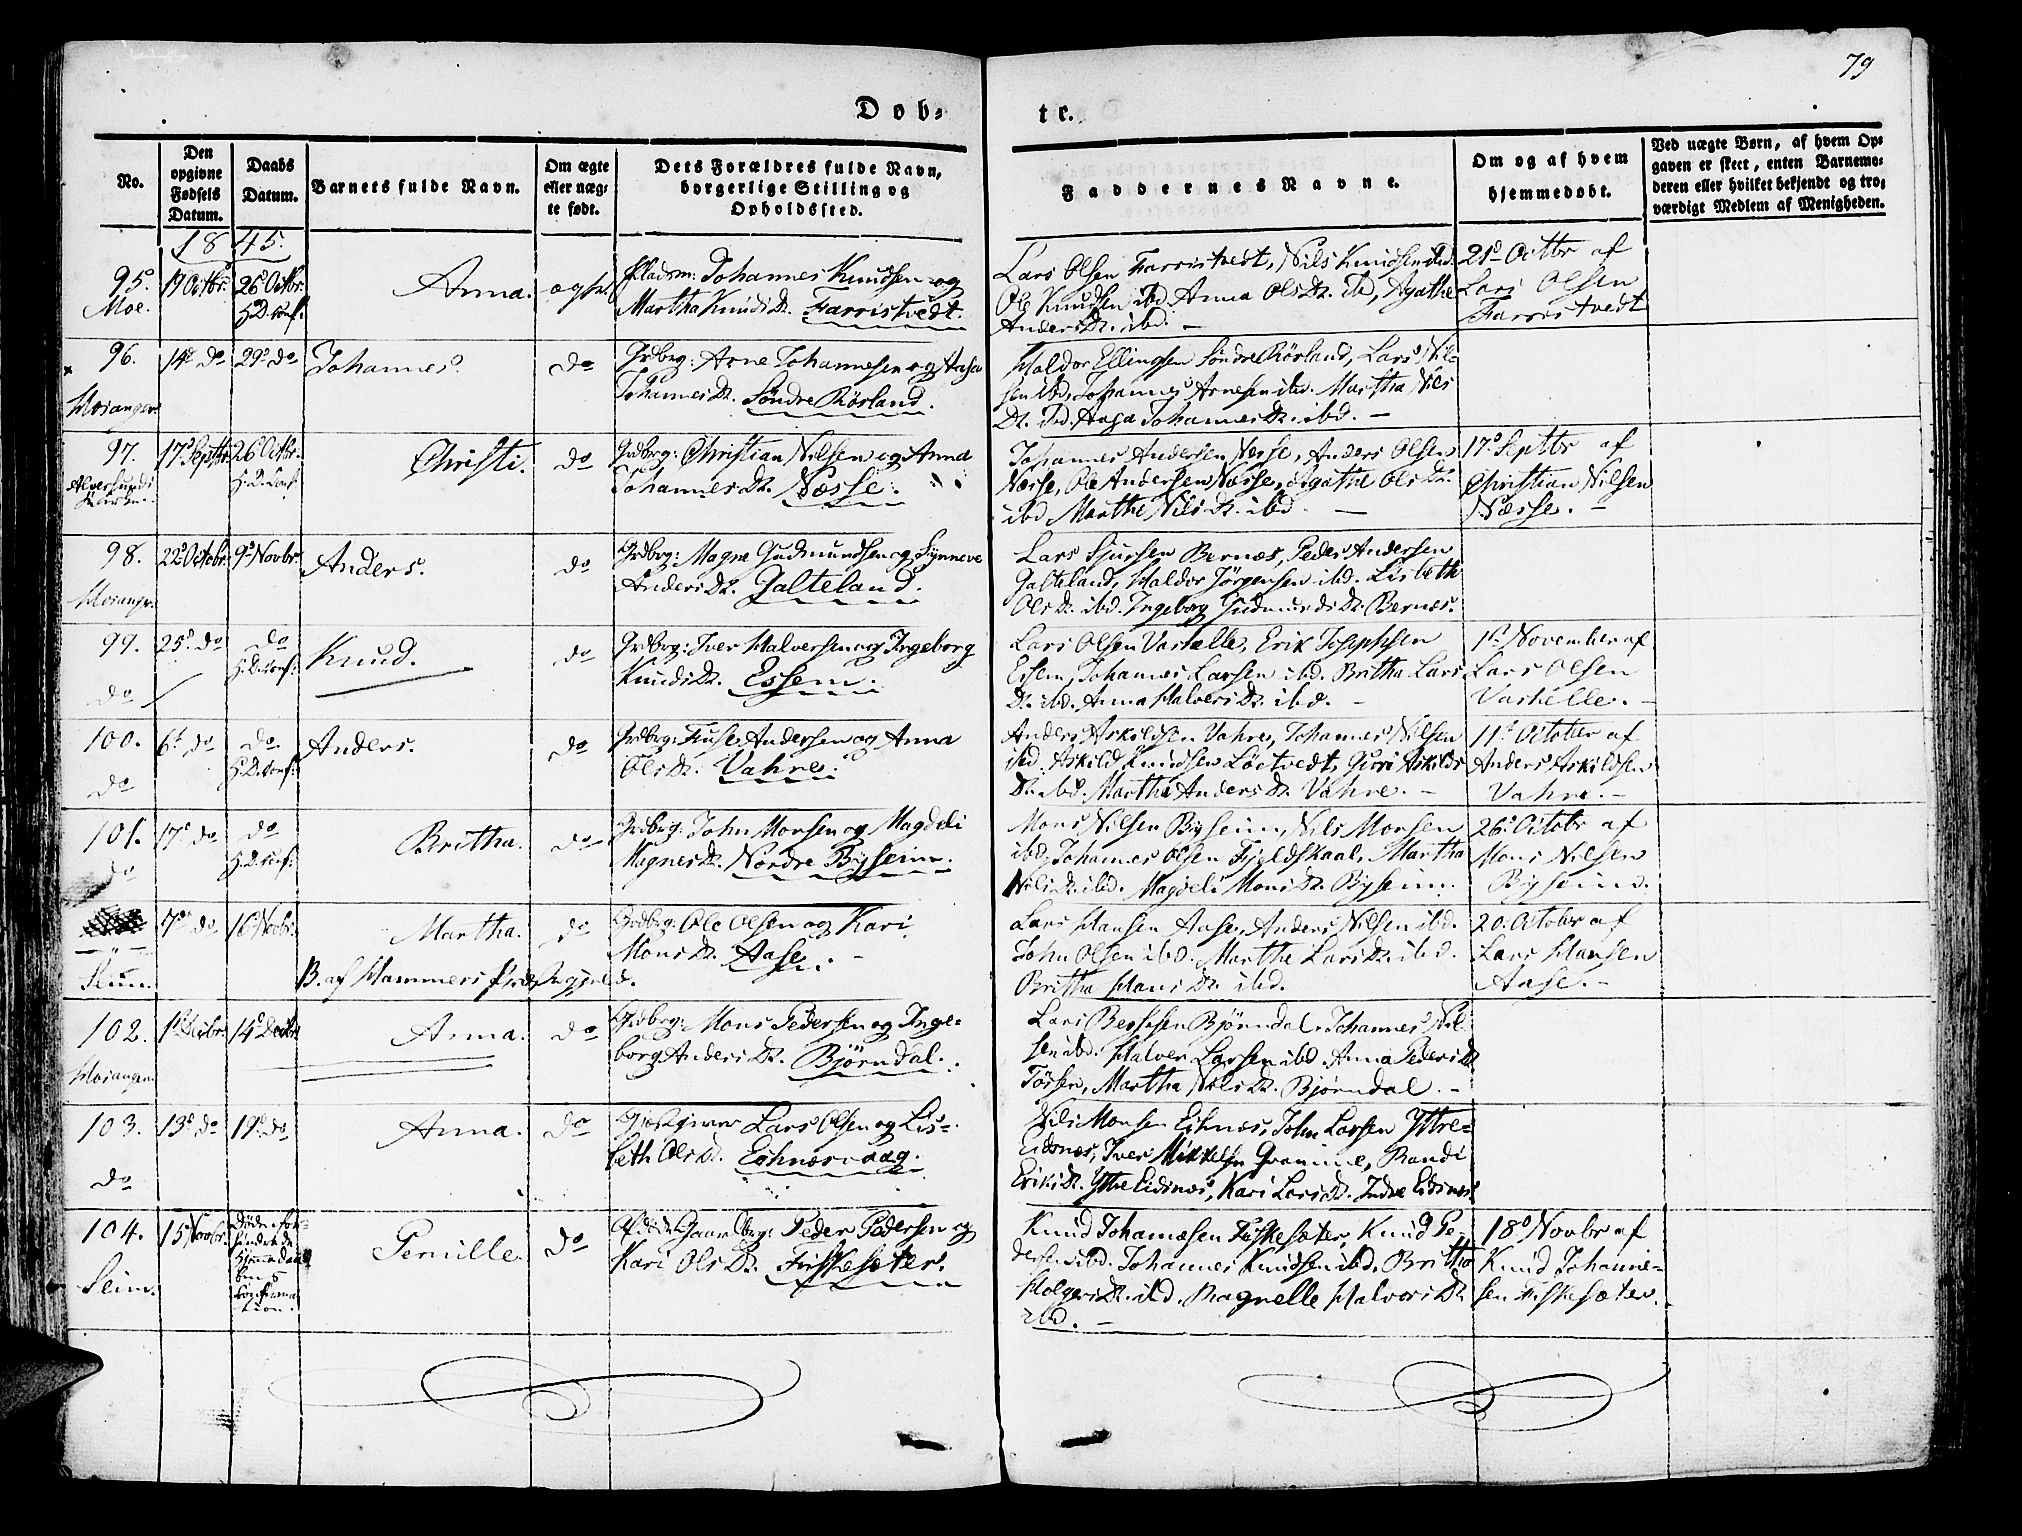 79
Døb-
te.
No.
Den opgivne Fødsels Datum.
Daabs Datum.
Barnets fulde Navn.
Om ægte eller uæg- te født.
Dets Forældres fulde Navn, borgerlige Stilling og Opholdssted.
Faddernes Navne.
Om og af hvem hjemmedøbt.
Ved uægte Børn, af hvem Op- gaven er skeet, enten Barnemo- deren eller hvilket bekjendt og tro- værdigt Medlem af Menigheden.
1845.
95. Moe.
19 Octbr.
26 Octbr. H.D. Conf.
Anna.
ægte.
Pladsm: Johannes Knudsen og
Martha Knuds D. Farristvedt.
Lars Olsen Farristvedt, Nils Knudsen ibd.
Ole Knudsen ibd. Anna Ols D. ibd, Agathe
Anders D. ibd. —
21de Octbr af
Lars Olsen
Farristvedt
96. Hosanger
14de do
29de do
Johannes.
do
Grdbrg: Arne Johannesen og Aasa
Johannes D. Søndre Rørland.
Haldor Ellingsen Søndre Rörland, Lars Nil-
sen ibd, Johannes Arnesen ibd. Martha Nils
D. ibd. Aasa Johannes D. ibd. —
97. Alversunds Kirke
17 Septbr.
26 Octbr. H.D. Conf.
Christi.
do
Grdbrg: Christian Nilsen og Anna
Johannes D. Næsse.
Johannes Andersen Næsse, Anders Olsen
Næsse, Ole Andersen Næsse, Agathe Ols D.
ibd Marthe Nils D. ibd. —
17de Septbr af
Christian Nilsen
Næsse. —
98. Hosanger.
22 Octobr.
9de Novbr.
Anders.
do
Grdbrg: Magne Gudmundsen og Synneve
Anders D. Galteland.
Lars Sjursen Bernæs, Peder Andersen
Galteland, Haldor Jörgensen ibd. Lisbeth
Ols D. ibd. Ingeborg Gudmunds D. Bernæs.
99. do
25de do
do H.D. Conf:
Knud.
do
Grdbrg: Iver Halversen og Ingeborg
Knuds D. Essem.
Lars Olsen Vashelle, Erik Josephsen
Essem, Johannes Larsen ibd. Britha Lars
D. ibd. Anna Halvers D. ibd. —
1ste November af
Lars Olsen
Vashelle. —
100. do
6te do
do H.D. Conf:
Anders.
do
Grdbrg: Fuse Andersen og Anna
Ols D. Vahre.
Anders Askildsen Vahre, Johannes Nilsen
ibd. Askild Knudsen Löetvedt, Guri Askilds
D. ibd. Martha Anders D. Vahre. —
11te October af
Anders Askildsen
Vahre. —
101. do
17de do
do H.D. Conf:
Britha.
do
Grdbrg: John Monsen og Magdeli
Magnes D. Nordre Bysein.
Mons Nilsen Byseim, Nils Monsen
ibd. Johannes Olsen Fjeldskaal, Martha
Nils D. ibd. Magdeli Mons D. Byseim.
26de Octobr af
Mons Nilsen
Byseim.
Seim.
7de do
16 Novbr.
Martha.
do
B. af Hammers Præstegjeld.
Grdbrg: Ole Olsen og Kari
Mons D. Aase. —
Lars Hansen Aase, Anders Nilsen ibd.
John Olsen ibd. Marthe Lars D. ibd.
Britha Hans D. ibd.
20. Octobr af
Lars Hansen
Aase. —
102. Hosanger
1ste Decbr.
14de Decbr.
Anna.
do
Grdbrg: Mons Pedersen og Inge-
borg Anders D. Bjørndal.
Lars Bessesen Bjørndal, Johannes Nil-
sen ibd. Halver Larsen ibd. Anna Peders D.
Törsen, Martha Nils D. Bjørndal. —
103. do
13de do
19de do
Anna.
do
Lars Olsen og Lis-
beth Ols D. Eshnæsvaag.
Nils Monsen Eshnæs, John Larsen Yttre-
Eidsnæs, Iver Mikkelsen Gramme, Randi
Eriks D. Yttre Eidsnæs, Kari Lars D. Indre Eidsnæs.
104. Seim.
15 Novbr.
Døde for- hindrede Hjemmedaa- bens Confirma- tion.
Pernille.
do
Gaardbrg: Peder Pedersen og
Kari Ols D. Fiskesæter.
Knud Johannesen Fiskesæter, Knud Pe-
dersen ibd. Johannes Knudsen ibd. Britha
Holgers D. ibd. Ragnelle Halvers D.
ibd. —
18de Novbr af
Knud Johanne-
sen Fiskesæter.